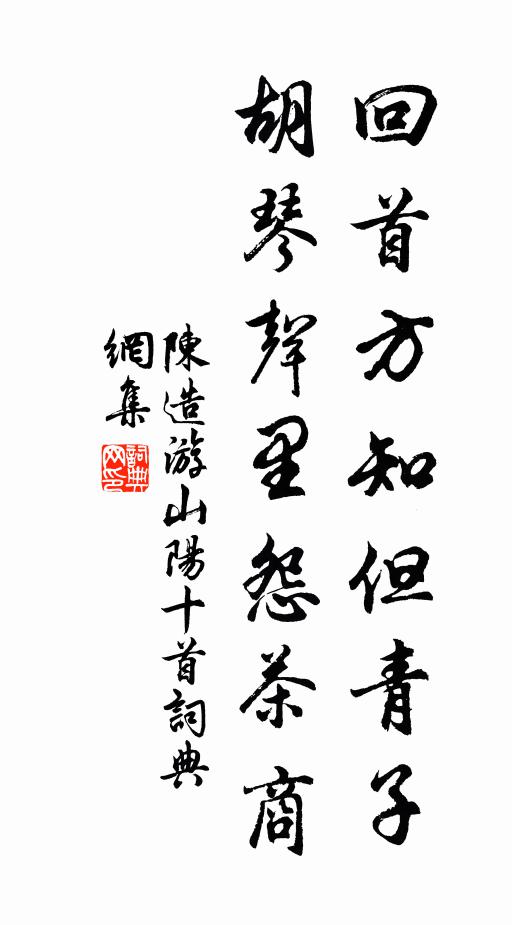 回首方知但青子
胡琴聲里怨茶商
陳造游山陽十首詞典
網集
詞典
网印